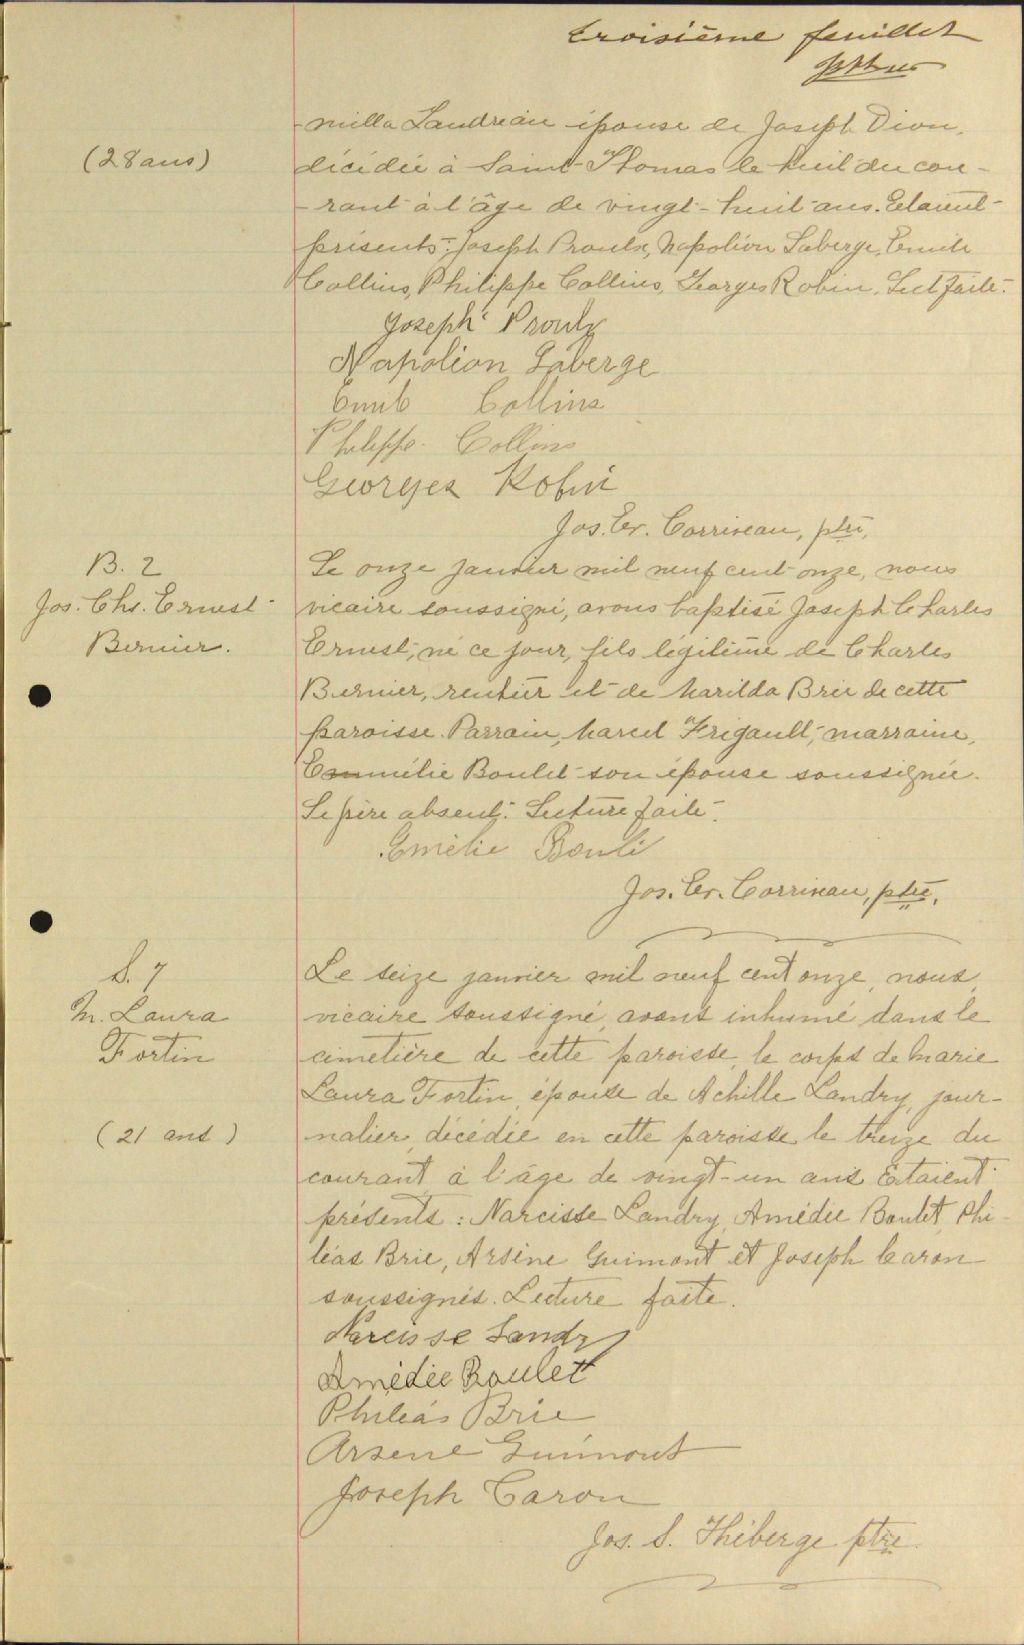 troisième feuillet
-milla Landreau épouse de Joseph Dion,
(28 ans)
décédée à Saint-Thomas le huit du cou-
-rant à l'âge de vingt-huit ans. Etaient
présents: Joseph Proulx, Napoléon Laberge, Emile
Collins, Philippe Collins, Georges Robin. Lect. faite.
Joseph Proulx
Napoléon Laberge
Emile Collins
Philippe Collins
Georges Robin
Jos. Er. Corriveau, ptre,
B. 2
Jos. Chs. Ernest
Bernier.
Le onze janvier mil neuf cent onze, nous
vicaire soussigné, avons baptisé Joseph Charles
Ernest, né ce jour, fils légitime de Charles
Bernier, rentier et de Marilda Brie de cette
paroisse. Parrain, Marcel Frigault, marraine,
Emmélie Boulet son épouse soussignée.
Le père absent. Lecture faite.
Emélie Boulé
Jos. Er. Corriveau, ptre,
S. 7
M. Laura
Fortin
(21 ans)
Le seize janvier mil neuf cent onze, nous,
vicaire soussigné, avons inhumé dans le
cimetière de cette paroisse, le corps de Marie
Laura Fortin, épouse de Achille Landry, jour-
nalier, décédée en cette paroisse le treize du
courant, à l'âge de vingt-un ans. Etaient
présents: Narcisse Landry, Amédée Boulet, Phi-
léas Brie, Arsène Guimont et Joseph Caron
soussignés. Lecture faite.
Narcisse Landry
Amédée Boulet
Philéas Brie
Arsene Guimont
Joseph Caron
Jos. S. Théberge ptre.